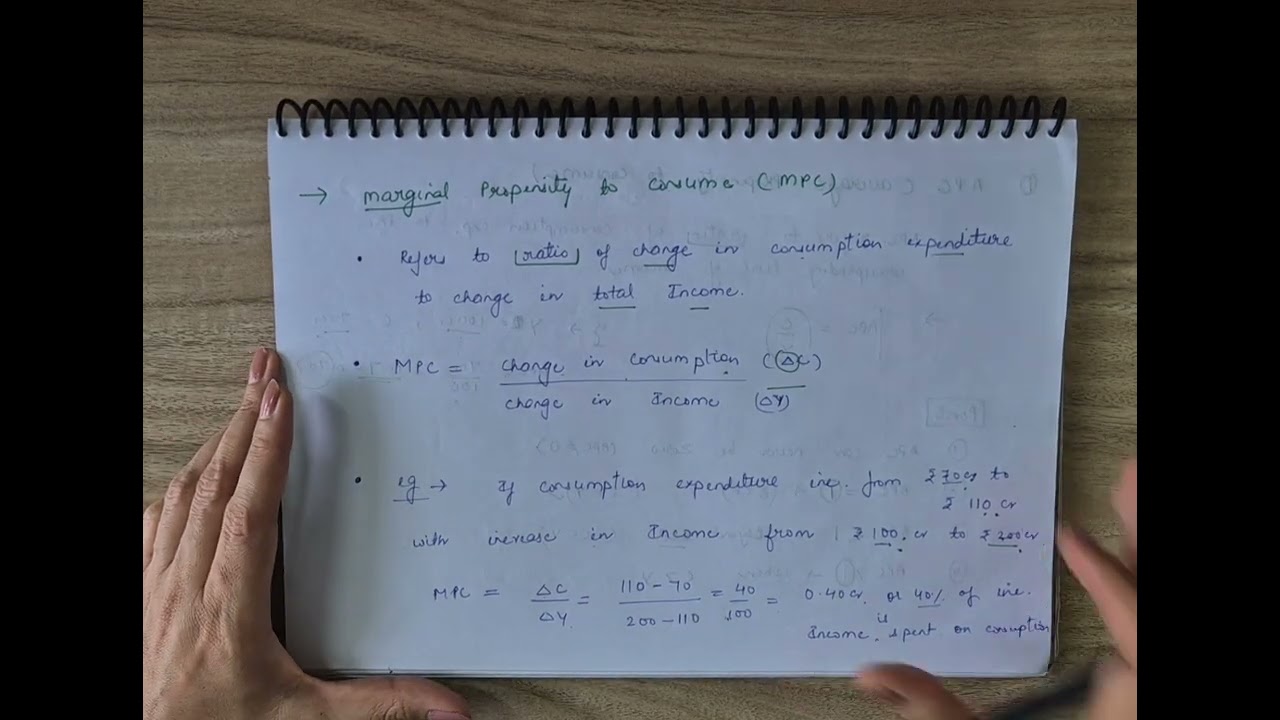 → marginal Propensity to consume (MPC)
• Refers to ratio of change in consumption expenditure
to change in total Income.
• MPC = change in consumption (ΔC)
change in Income (ΔY)
• eg → If consumption expenditure inc. from ₹70cr to
₹ 110 cr
with increase in Income from ₹100 cr to ₹200cr
MPC = ΔC/ΔY = 110-70/200-110 = 40/100 = 0.40cr. or 40% of inc.
Income is spent on consuption